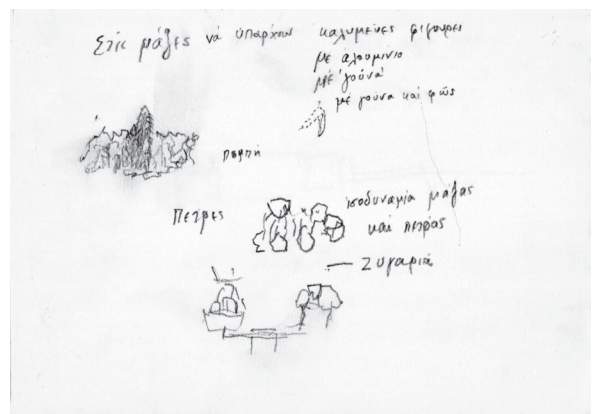 Στίς μάζες νά ὑπάρχουν καλυμένες φιγούρες
μέ ἀλουμίνιο
μέ γούνα
μέ γούνα καί φῶς
πομπή
Πέτρες
ἰσοδυναμία μάζας
καί πέτρας
— Ζυγαριά